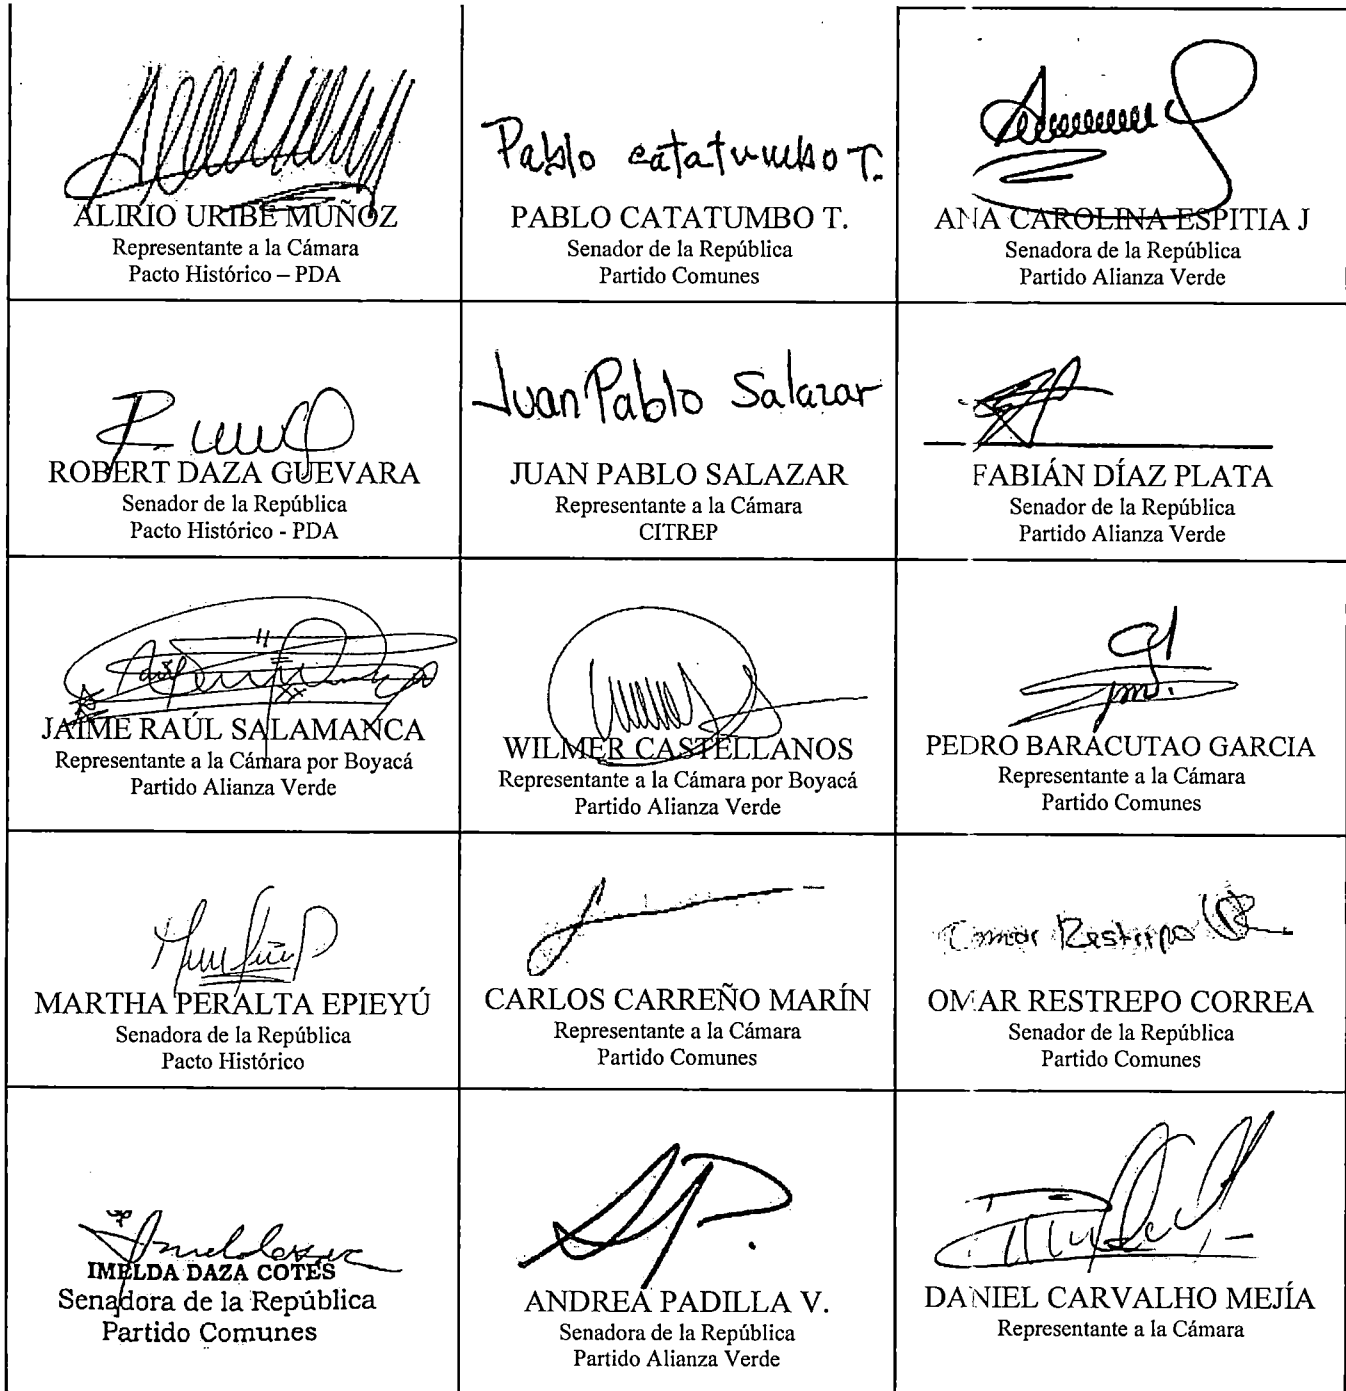 ALIRIO URIBE MUÑOZ
Representante a la Cámara
Pacto Histórico – PDA
Pablo catatumbo T.
PABLO CATATUMBO T.
Senador de la República
Partido Comunes
ANA CAROLINA ESPITIA J
Senadora de la República
Partido Alianza Verde
ROBERT DAZA GUEVARA
Senador de la República
Pacto Histórico - PDA
Juan Pablo Salazar
JUAN PABLO SALAZAR
Representante a la Cámara
CITREP
FABIÁN DÍAZ PLATA
Senador de la República
Partido Alianza Verde
JAIME RAÚL SALAMANCA
Representante a la Cámara por Boyacá
Partido Alianza Verde
WILMER CASTELLANOS
Representante a la Cámara por Boyacá
Partido Alianza Verde
PEDRO BARACUTAO GARCIA
Representante a la Cámara
Partido Comunes
MARTHA PERALTA EPIEYÚ
Senadora de la República
Pacto Histórico
CARLOS CARREÑO MARÍN
Representante a la Cámara
Partido Comunes
Omar Restrepo
OMAR RESTREPO CORREA
Senador de la República
Partido Comunes
IMELDA DAZA COTES
Senadora de la República
Partido Comunes
ANDREA PADILLA V.
Senadora de la República
Partido Alianza Verde
DANIEL CARVALHO MEJÍA
Representante a la Cámara